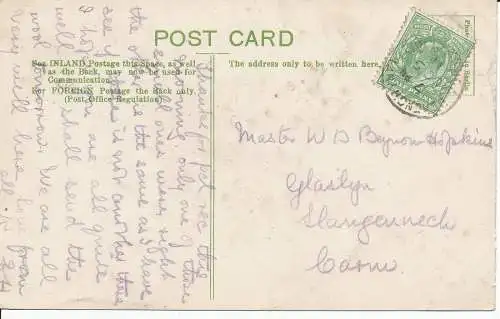 POST CARD
For INLAND Postage this Space, as well
as the Back, may now be used for
Communication.
For FOREIGN Postage the Back only.
(Post Office Regulation).
The address only to be written here.
Thanks for pcd rec this
morning. only one of these
ones was right
the other the same as I have
see if there is not another there
I hope you are all quite
well. I shall send the
wool tomorrow. We are all
very well here love from
all.
Master W D Beynon Hopkins
Glaslyn
Llangennech
Carm.